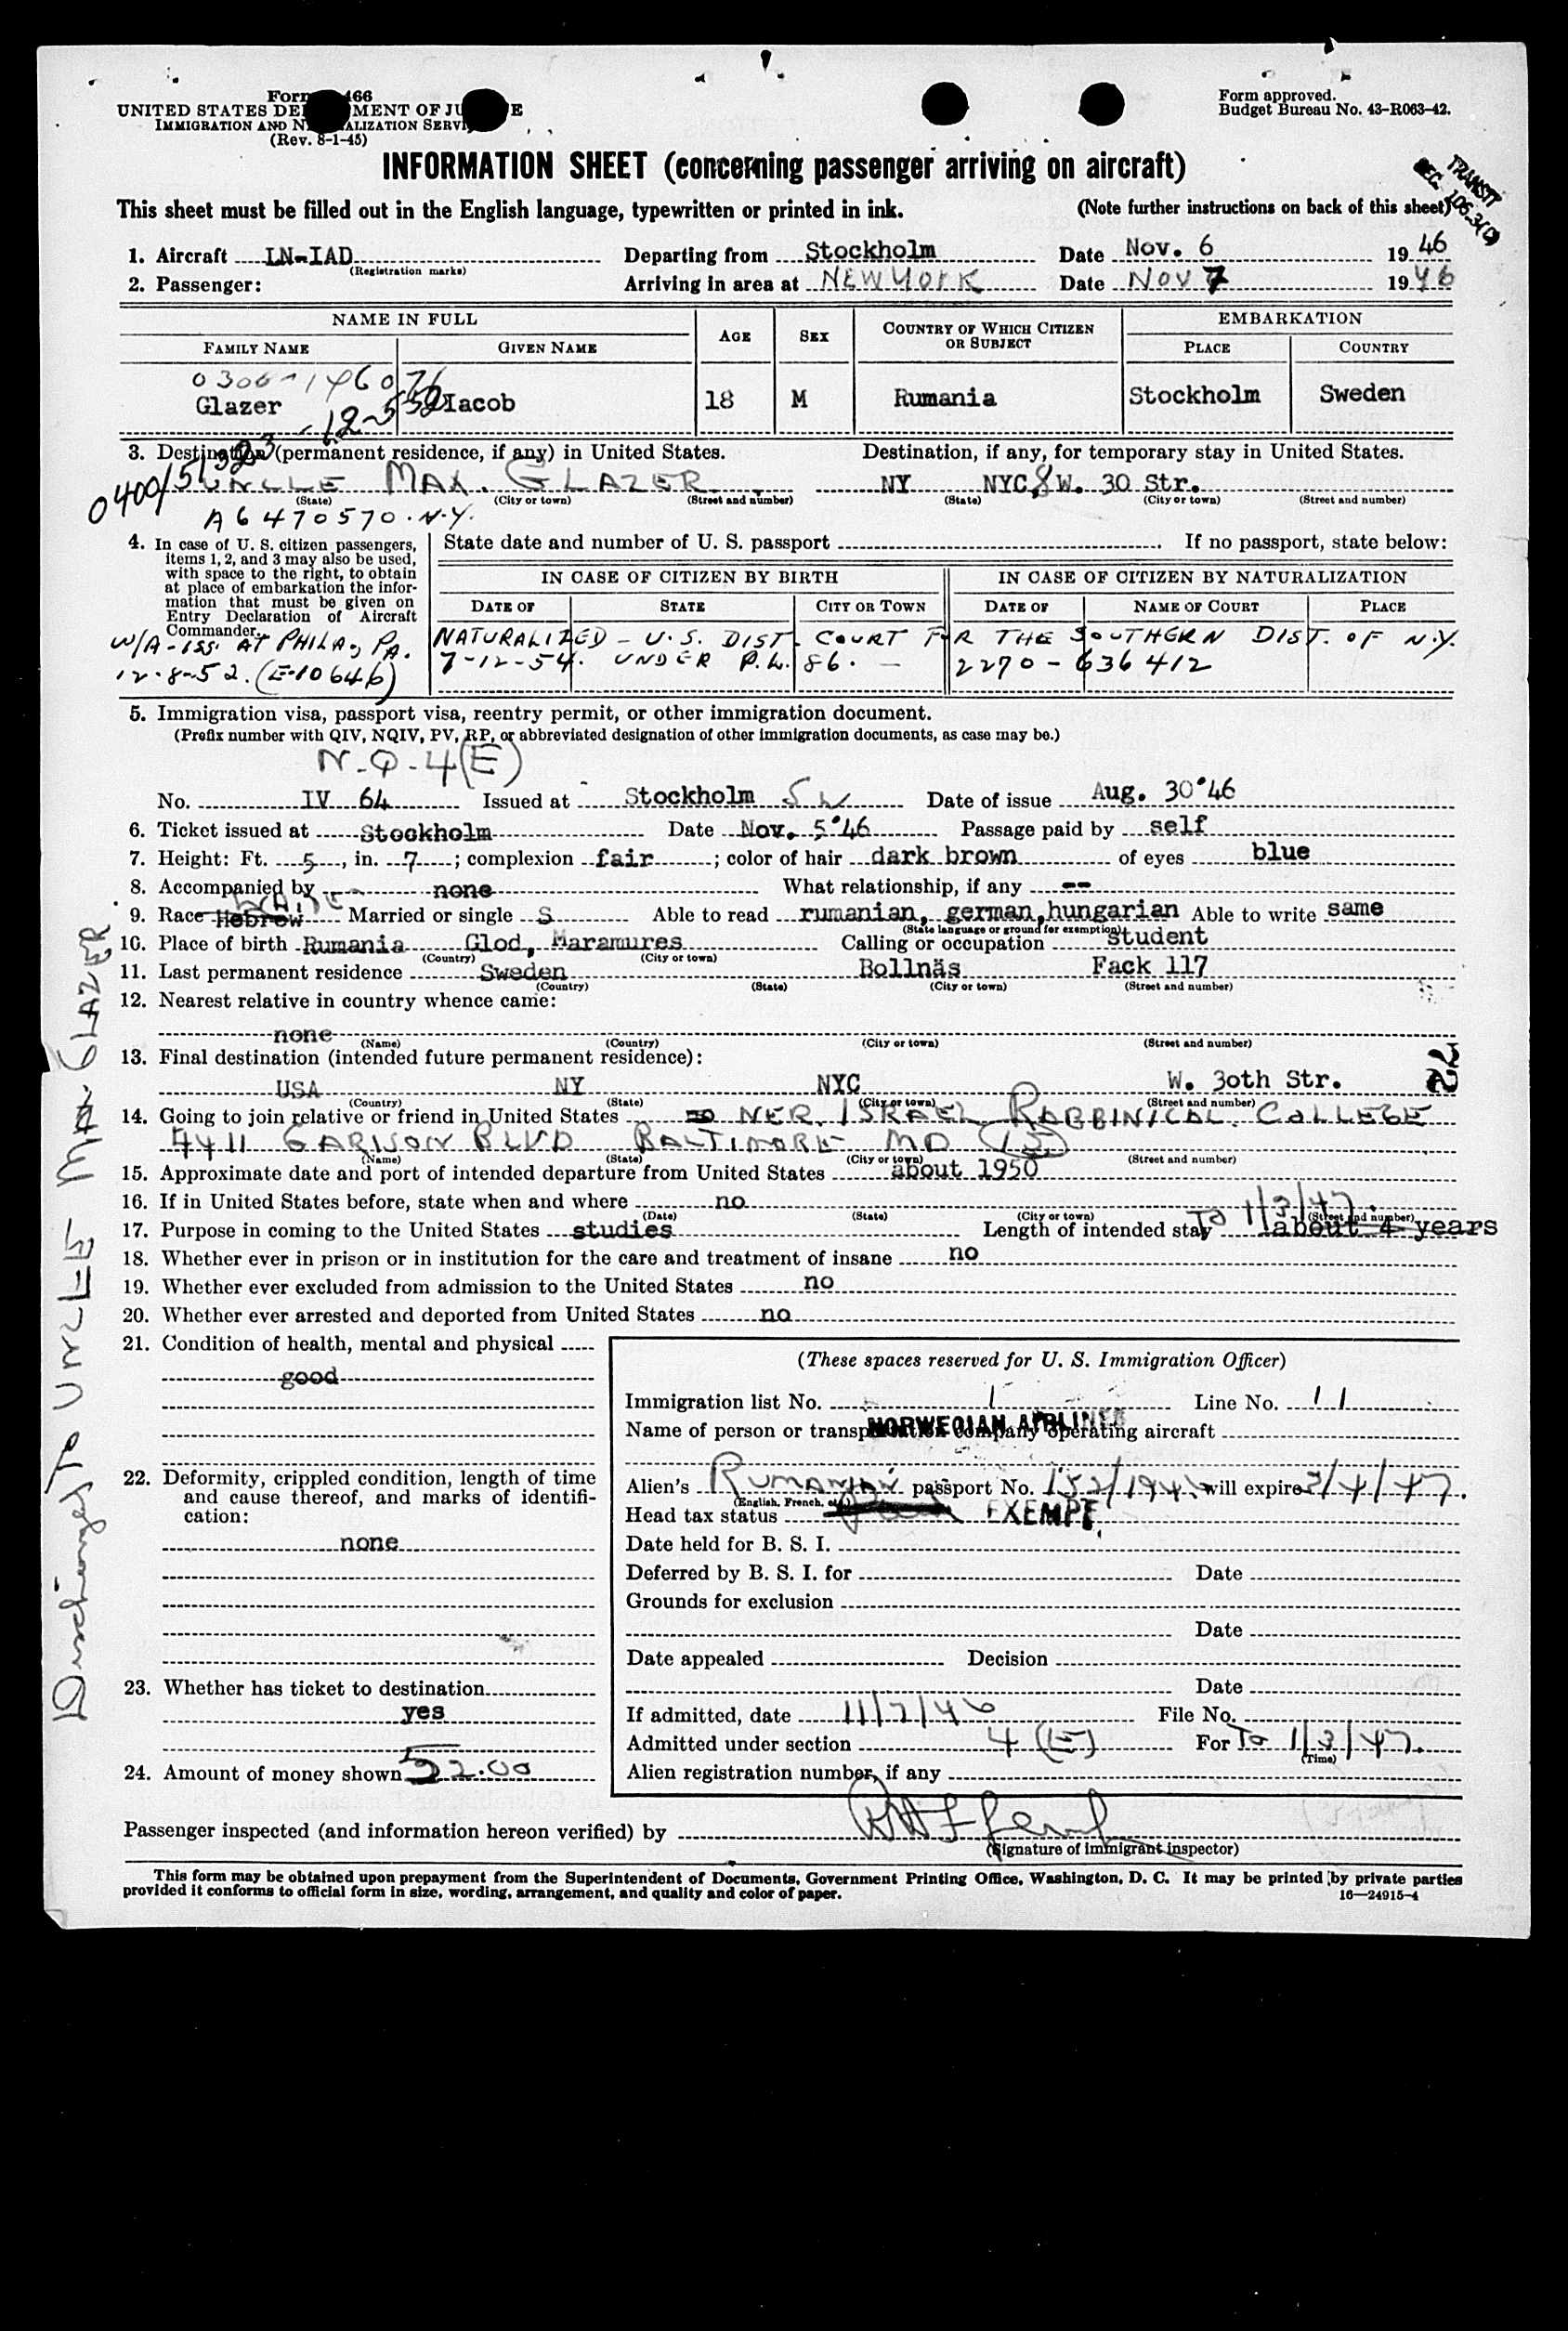 Form 466
UNITED STATES DEPARTMENT OF JUSTICE
IMMIGRATION AND NATURALIZATION SERVICE
(Rev. 8-1-45)
Form approved.
Budget Bureau No. 43-R063-42.
INFORMATION SHEET (concerning passenger arriving on aircraft)
TRANSIT
SEC. 106.3(C)
This sheet must be filled out in the English language, typewritten or printed in ink. (Note further instructions on back of this sheet)
1. Aircraft LN-IAD Departing from Stockholm Date Nov. 6 1946
(Registration marks)
2. Passenger: Arriving in area at NEW YORK Date NOV 7 1946
NAME IN FULL AGE SEX COUNTRY OF WHICH CITIZEN OR SUBJECT EMBARKATION
FAMILY NAME GIVEN NAME PLACE COUNTRY
Glazer Iacob 18 M Rumania Stockholm Sweden
3. Destination (permanent residence, if any) in United States. Destination, if any, for temporary stay in United States.
UNCLE MAX. GLAZER NY NYC 8 W. 30 Str.
(State) (City or town) (Street and number) (State) (City or town) (Street and number)
A6470570. N.Y.
4. In case of U. S. citizen passengers, items 1, 2, and 3 may also be used, with space to the right, to obtain at place of embarkation the information that must be given on Entry Declaration of Aircraft Commander.
State date and number of U. S. passport If no passport, state below:
IN CASE OF CITIZEN BY BIRTH IN CASE OF CITIZEN BY NATURALIZATION
DATE OF STATE CITY OR TOWN DATE OF NAME OF COURT PLACE
W/A-ISS. AT PHILA, PA.
12-8-52. (E-10646)
NATURALIZED - U.S. DIST. COURT FOR THE SOUTHERN DIST. OF N.Y.
7-12-54. UNDER P.L. 86. - 2270-636412
5. Immigration visa, passport visa, reentry permit, or other immigration document.
(Prefix number with QIV, NQIV, PV, RP, or abbreviated designation of other immigration documents, as case may be.)
N-Q-4(E)
No. IV 64 Issued at Stockholm SW Date of issue Aug. 30'46
6. Ticket issued at Stockholm Date Nov. 5'46 Passage paid by self
7. Height: Ft. 5, in. 7; complexion fair; color of hair dark brown of eyes blue
8. Accompanied by none What relationship, if any --
9. Race Hebrew Married or single S Able to read rumanian, german, hungarian Able to write same
(State language or ground for exemption)
10. Place of birth Rumania Glod, Maramures Calling or occupation student
(Country) (City or town)
11. Last permanent residence Sweden Bollnäs Fack 117
(Country) (State) (City or town) (Street and number)
12. Nearest relative in country whence came:
none
(Name) (Country) (City or town) (Street and number)
13. Final destination (intended future permanent residence):
USA NY NYC W. 30th Str.
(Country) (State) (City or town) (Street and number)
14. Going to join relative or friend in United States NER ISRAEL RABBINICAL COLLEGE
4411 GARISON BLVD BALTIMORE MD (15)
(Name) (State) (City or town) (Street and number)
15. Approximate date and port of intended departure from United States about 1950
16. If in United States before, state when and where no
(Date) (State) (City or town) (Street and number)
17. Purpose in coming to the United States studies Length of intended stay To 1/3/47 about 4 years
18. Whether ever in prison or in institution for the care and treatment of insane no
19. Whether ever excluded from admission to the United States no
20. Whether ever arrested and deported from United States no
21. Condition of health, mental and physical
good
22. Deformity, crippled condition, length of time and cause thereof, and marks of identification:
none
23. Whether has ticket to destination
yes
24. Amount of money shown 52.00
(These spaces reserved for U. S. Immigration Officer)
Immigration list No. 1 Line No. 11
Name of person or transportation company operating aircraft
NORWEGIAN AIRLINES
Alien's RUMANIAN passport No. will expire 3/4/47.
(English, French, etc.)
Head tax status EXEMPT
Date held for B. S. I.
Deferred by B. S. I. for Date
Grounds for exclusion
Date
Date appealed Decision
Date
If admitted, date 11/7/46 File No.
Admitted under section 4 (E) For To 1/3/47.
(Time)
Alien registration number, if any
Passenger inspected (and information hereon verified) by
(Signature of immigrant inspector)
This form may be obtained upon prepayment from the Superintendent of Documents, Government Printing Office, Washington, D. C. It may be printed by private parties
provided it conforms to official form in size, wording, arrangement, and quality and color of paper. 16—24915-4
Discharged TO UNCLE MAX GLAZER